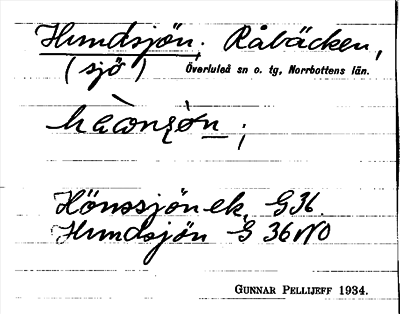 Hundsjön. Råbäcken,
(sjö) Överluleå sn o. tg, Norrbottens län.
Hönssjön ek. G36.
Hundsjön G 36 NO
GUNNAR PELLIJEFF 1934.